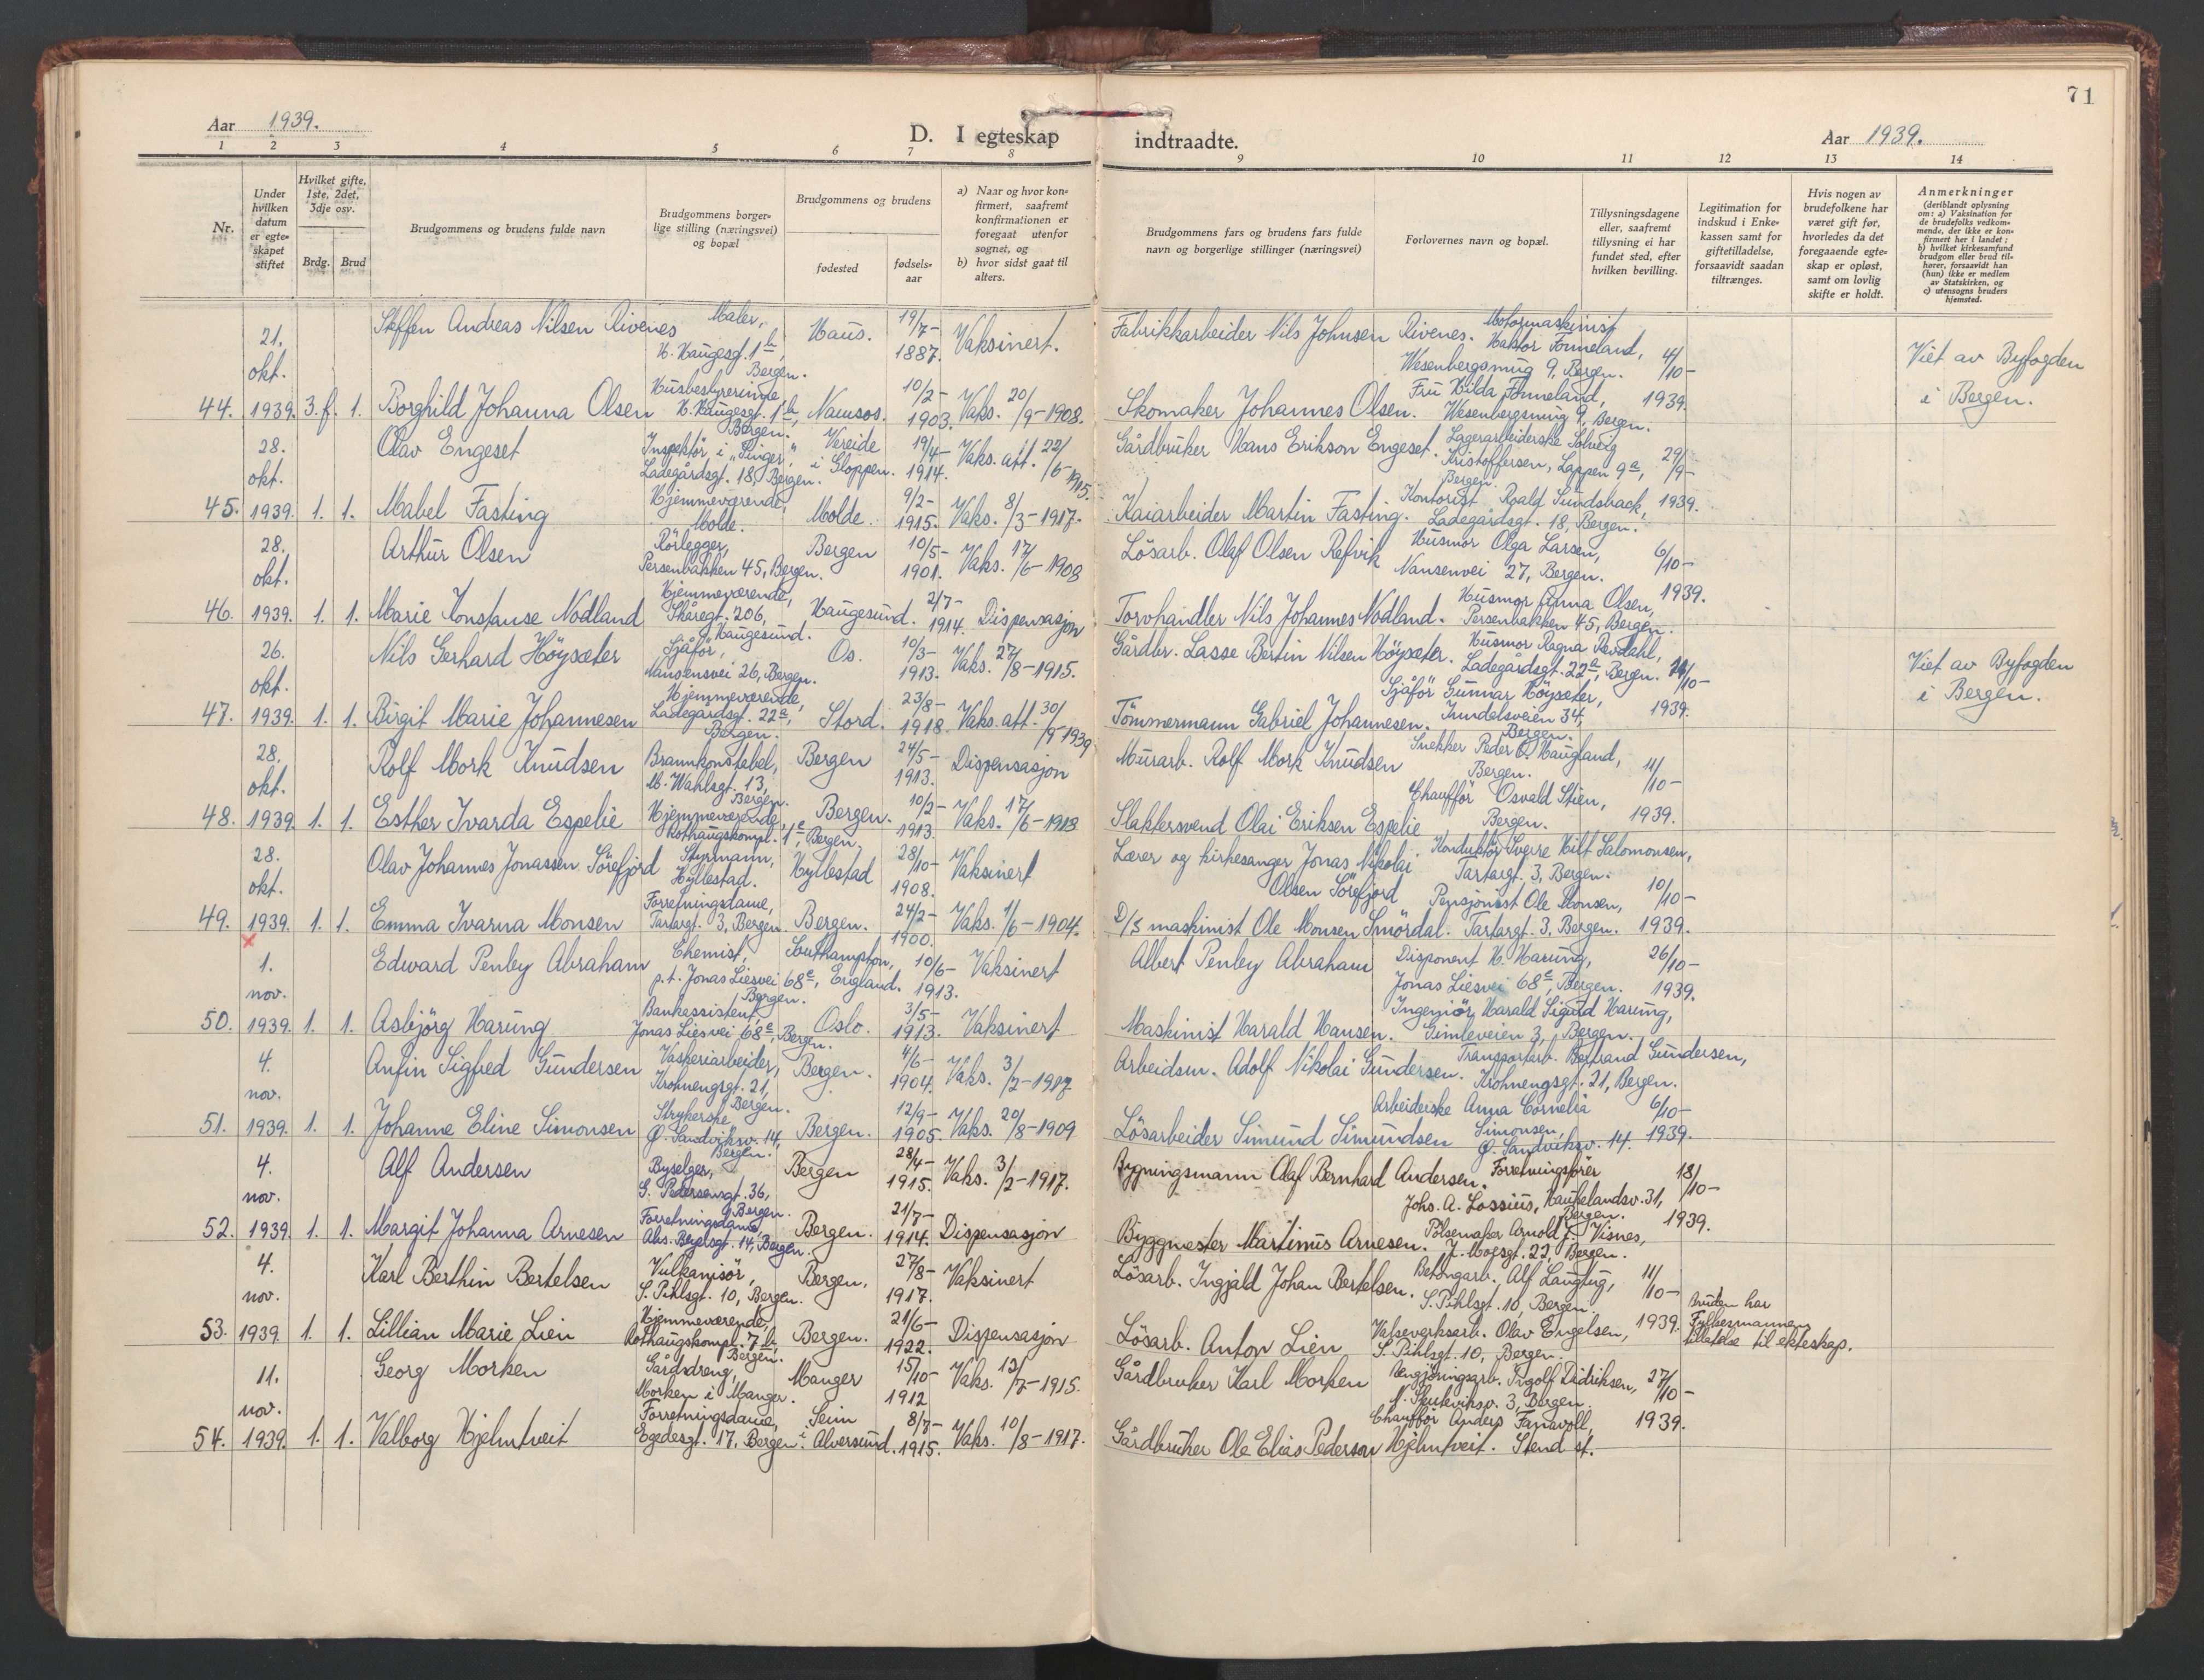 71
Aar 1939.
D. I egteskap indtraadte.
Aar 1939.
1 2 3 4 5 6 7 8 9 10 11 12 13 14
Nr.
Under hvilken datum er egte-skapet stiftet
Hvilket gifte, 1ste, 2det, 3dje osv.
Brdg. Brud
Brudgommens og brudens fulde navn
Brudgommens borger-lige stilling (næringsvei) og bopæl
Brudgommens og brudens
fødested
fødsels-aar
a) Naar og hvor kon-firmert, saafremt konfirmationen er foregaat utenfor sognet, og
b) hvor sidst gaat til alters.
Brudgommens fars og brudens fars fulde navn og borgerlige stillinger (næringsvei)
Forlovernes navn og bopæl.
Tillysningsdagene eller, saafremt tillysning ei har fundet sted, efter hvilken bevilling.
Legitimation for indskud i Enke-kassen samt for giftetilladelse, forsaavidt saadan tiltrænges.
Hvis nogen av brudefolkene har været gift før, hvorledes da det foregaaende egte-skap er opløst, samt om lovlig skifte er holdt.
Anmerkninger (deriblandt oplysning om: a) Vaksination for de brudefolks vedkom-mende, der ikke er kon-firmert her i landet; b) hvilket kirkesamfund brudgom eller brud til-hører, forsaavidt han (hun) ikke er medlem av Statskirken, og c) utensogns bruders hjemsted.
44. 21. okt. 1939. 3.f. 1.
Steffen Andreas Nilsen Rivenes Maler, H. Haugesgt. 1b, Bergen. Haus. 19/7-1887. Vaksinert.
Fabrikkarbeider Nils Johnsen Rivenes. Motormaskinist Haktor Fonneland, Wesenbergsmug 9, Bergen. 4/10-1939. Viet av Byfogden i Bergen.
Borghild Johanna Olsen Husbestyrerinne, H. Haugesgt. 1b, Bergen. Namsos. 10/2-1903. Vaks. 20/9-1908.
Skomaker Johannes Olsen. Fru Hilda Fonneland, Wesenbergsmug 9, Bergen.
45. 28. okt. 1939. 1. 1.
Olav Engeset Inspektör i "Singer", Ladegårdsgt. 18, Bergen. Vereide i Gloppen. 19/4-1914. Vaks. att. 22/6-1915.
Gårdbruker Hans Erikson Engeset. Lagerarbeiderske Solveig Kristoffersen, Lappen 9a, Bergen. 29/9-1939.
Mabel Fasting Hjemmeværende, Molde. Molde. 9/2-1915. Vaks. 8/3-1917.
Kaiarbeider Martin Fasting. Kontorist Roald Sundsback, Ladegårdsgt. 18, Bergen.
46. 28. okt. 1939. 1. 1.
Arthur Olsen Rörlegger, Persenbakken 45, Bergen. Bergen 10/5-1901. Vaks. 17/6-1908
Lösarb. Olaf Olsen Refvik Husmor Olga Larsen, Nansenvei 27, Bergen. 6/10-1939.
Marie Konstanse Nodland Hjemmeværende, Skåregt. 206, Haugesund. Haugesund. 2/7-1914. Dispensasjon
Torvhandler Nils Johannes Nodland. Husmor Anna Olsen, Persenbakken 45, Bergen.
47. 26. okt. 1939. 1. 1.
Nils Gerhard Höysæter Sjåför, Nansensvei 26, Bergen. Os. 10/3-1913. Vaks. 27/8-1915.
Gårdbr. Lasse Bertin Nilsen Höysæter. Husmor Ragna Røvdahl, Ladegårdsgt. 22a, Bergen. /10-1939. Viet av Byfogden i Bergen.
Birgit Marie Johannesen Hjemmeværende, Ladegårdsgt. 22a, Bergen. Stord. 23/8-1918. Vaks. att. 30/9-1939
Tömmermann Gabriel Johannesen. Sjåför Gunnar Höysæter, 34, Bergen.
48. 28. okt. 1939. 1. 1.
Rolf Mork Knudsen Brannkonstabel, M. Wahlsgt. 13, Bergen. Bergen 24/5-1913. Dispensasjon
Murarb. Rolf Mork Knudsen Snekker Peder O. Haugland, Bergen. 11/10-1939.
Esther Ivarda Espelie Hjemmeværende, Rothaugskompl. 1e, Bergen. Bergen. 10/2-1913. Vaks. 17/6-1913
Slaktersvend Olai Eriksen Espelie Chaufför Osvald Stien, Bergen.
49. 28. okt. 1939. 1. 1.
Olav Johannes Jonassen Sörefjord Styrmann, Hyllestad. Hyllestad 28/10-1908. Vaksinert
Lærer og kirkesanger Jonas Nikolai Olsen Sörefjord Konduktör Sverre Hilt Salomonsen, Tartargt. 3, Bergen. 10/10-1939.
Emma Ivarna Monsen Forretningsdame, Tartargt. 3, Bergen. Bergen. 24/2-1900. Vaks. 1/6-1904.
D/s maskinist Ole Monsen Smördal. Pensjonist Ole Monsen, Tartargt. 3, Bergen.
50. x 1. nov. 1939. 1. 1.
Edward Penley Abraham Chemist, p.t. Jonas Liesvei 68e, Bergen. Southampton, England. 10/6-1913. Vaksinert
Albert Penley Abraham Disponent H. Harung, Jonas Liesvei 68e, Bergen. 26/10-1939.
Asbjörg Harung Bankassistent, Jonas Liesvei 68e, Bergen. Oslo. 3/5-1913. Vaksinert
Maskinist Harald Hansen. Ingeniör Harald Sigurd Harung, Gimleveien 3, Bergen.
51. 4. nov. 1939. 1. 1.
Anfin Sigfred Gundersen Vaskeriarbeider, Krohnengsgt. 21, Bergen. Bergen. 4/6-1904. Vaks. 3/2-1917
Arbeidsm. Adolf Nikolai Gundersen. Transportarb. Bertrand Gundersen, Krohnengsgt. 21, Bergen. 6/10-1939.
Johanne Eline Simonsen Strykerske Ø. Sandviksv. 14, Bergen. Bergen. 12/9-1905. Vaks. 20/8-1909
Lösarbeider Simund Simundsen Arbeiderske Anna Cornelia Simonsen, Ø. Sandviksv. 14.
52. 4. nov. 1939. 1. 1.
Alf Andersen Byselger, S. Pedersensgt. 36, Bergen. Bergen 28/4-1915. Vaks. 3/2-1917.
Bygningsmann Olaf Bernhard Andersen. Forretningsfører Johs. A. Lossius, Haukelandsv. 31, Bergen. 18/10-1939.
Margit Johanna Arnesen Forretningsdame, Abs. Beyersgt. 14, Bergen. Bergen. 21/7-1914. Dispensasjon
Byggmester Martinus Arnesen. Pölsemaker Arnold L. Visnes, J. Moesgt. 22, Bergen.
53. 4. nov. 1939. 1. 1.
Karl Berthin Bertelsen Vulkanisör, S. Pihlsgt. 10, Bergen. Bergen. 27/8-1917. Vaksinert
Lösarb. Ingjald Johan Bertelsen. Betongarb. Alf Langtug, S. Pihlsgt. 10, Bergen. 11/10-1939. Bruden har Fylkesmannens tillatelse til ekteskap.
Lillian Marie Lien Hjemmeværende, Rothaugskompl. 7b, Bergen. Bergen. 21/6-1922. Dispensasjon
Lösarb. Anton Lien Valseverksarb. Olav Engelsen, S. Pihlsgt. 10, Bergen.
54. 11. nov. 1939. 1. 1.
Georg Morken Gårdsdreng, Morken i Manger. Manger 15/10-1912 Vaks. 12/7-1915.
Gårdbruker Karl Morken Rengjöringsarb. Ingolf Didriksen, N. Skuteviksv. 3, Bergen. 27/10-1939.
Valborg Hjelmtveit Forretningsdame, Egedesgt. 17, Bergen. Seim i Alversund. 8/7-1915. Vaks. 10/8-1917.
Gårdbruker Ole Elias Pederson Hjelmtveit. Chaufför Anders Fanavoll, Stend st.